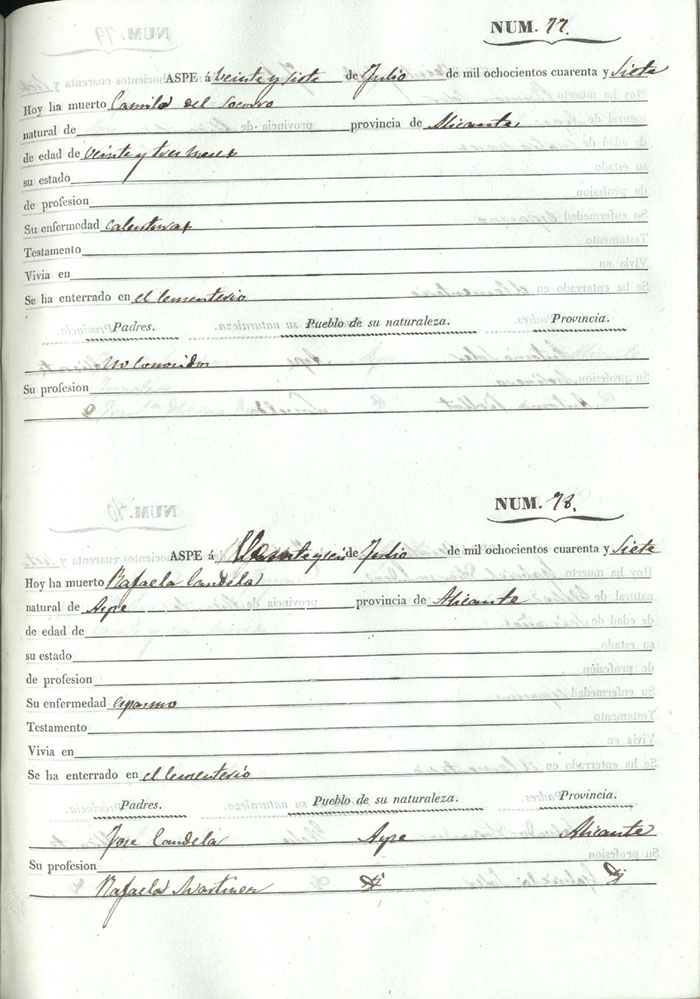 NUM. 77.
ASPE á veinte y siete de Julio de mil ochocientos cuarenta y siete
Hoy ha muerto Camila del Socorro
natural de provincia de Alicante
de edad de veinte y tres meses
su estado
de profesion
Su enfermedad calenturas
Testamento
Vivia en
Se ha enterrado en el Cementerio
Padres. Pueblo de su naturaleza. Provincia.
No Conocidos
Su profesion
NUM. 78.
ASPE á de Julio de mil ochocientos cuarenta y siete
Hoy ha muerto Rafaela Candela
natural de Aspe provincia de Alicante
de edad de
su estado
de profesion
Su enfermedad espasmo
Testamento
Vivia en
Se ha enterrado en el Cementerio
Padres. Pueblo de su naturaleza. Provincia.
Jose Candela Aspe Alicante
Su profesion
Rafaela Martinez